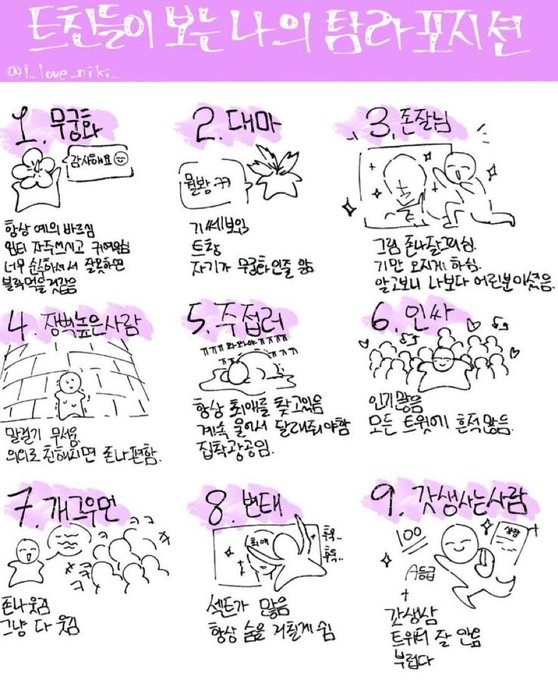 트친들이 보는 나의 탐라 포지션
@i_love_niki_
1. 무궁화
감사해요
항상 예의 바르심
웜티 자주쓰시고 귀여워심
너무 순하셔서 잘못하면
불라먹을것같음
2. 대마
뭘봐 ㄲㄲ
기 쎄보임
트창
자기가 무궁화인줄 앎
3. 존잘님
그림 존나잘그리심.
기만 오지게 하심.
알고보니 나보다 어린분이셨음.
4. 장벽높은사람
말걸기 무서움
의외로 친해지면 존나편함.
5. 주접러
ㅠㅠㅠ와와아ㅠㅠㅠ
항상 최애를 찾고있음
계속 울어서 달래줘야함
집착광공임.
6. 인싸
인기많음
모든 트윗에 흔적많음.
7. 개그우먼
존나웃김
그냥 다 웃김
8. 변태
최애
흐윽..
흐윽..
섹드가 많음
항상 숨을 거칠게 쉼
9. 갓생사는사람
100
상장
A등급
갓생삼
트위터 잘 안옴
부럽다